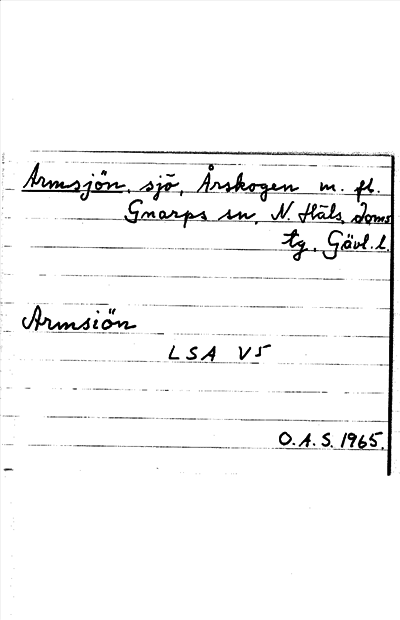 Armsjön, sjö, Årskogen m. fl.
Gnarps sn, N. Häls. doms
tg, Gävl. l.
Armsiön
LSA V5
O.A.S. 1965.